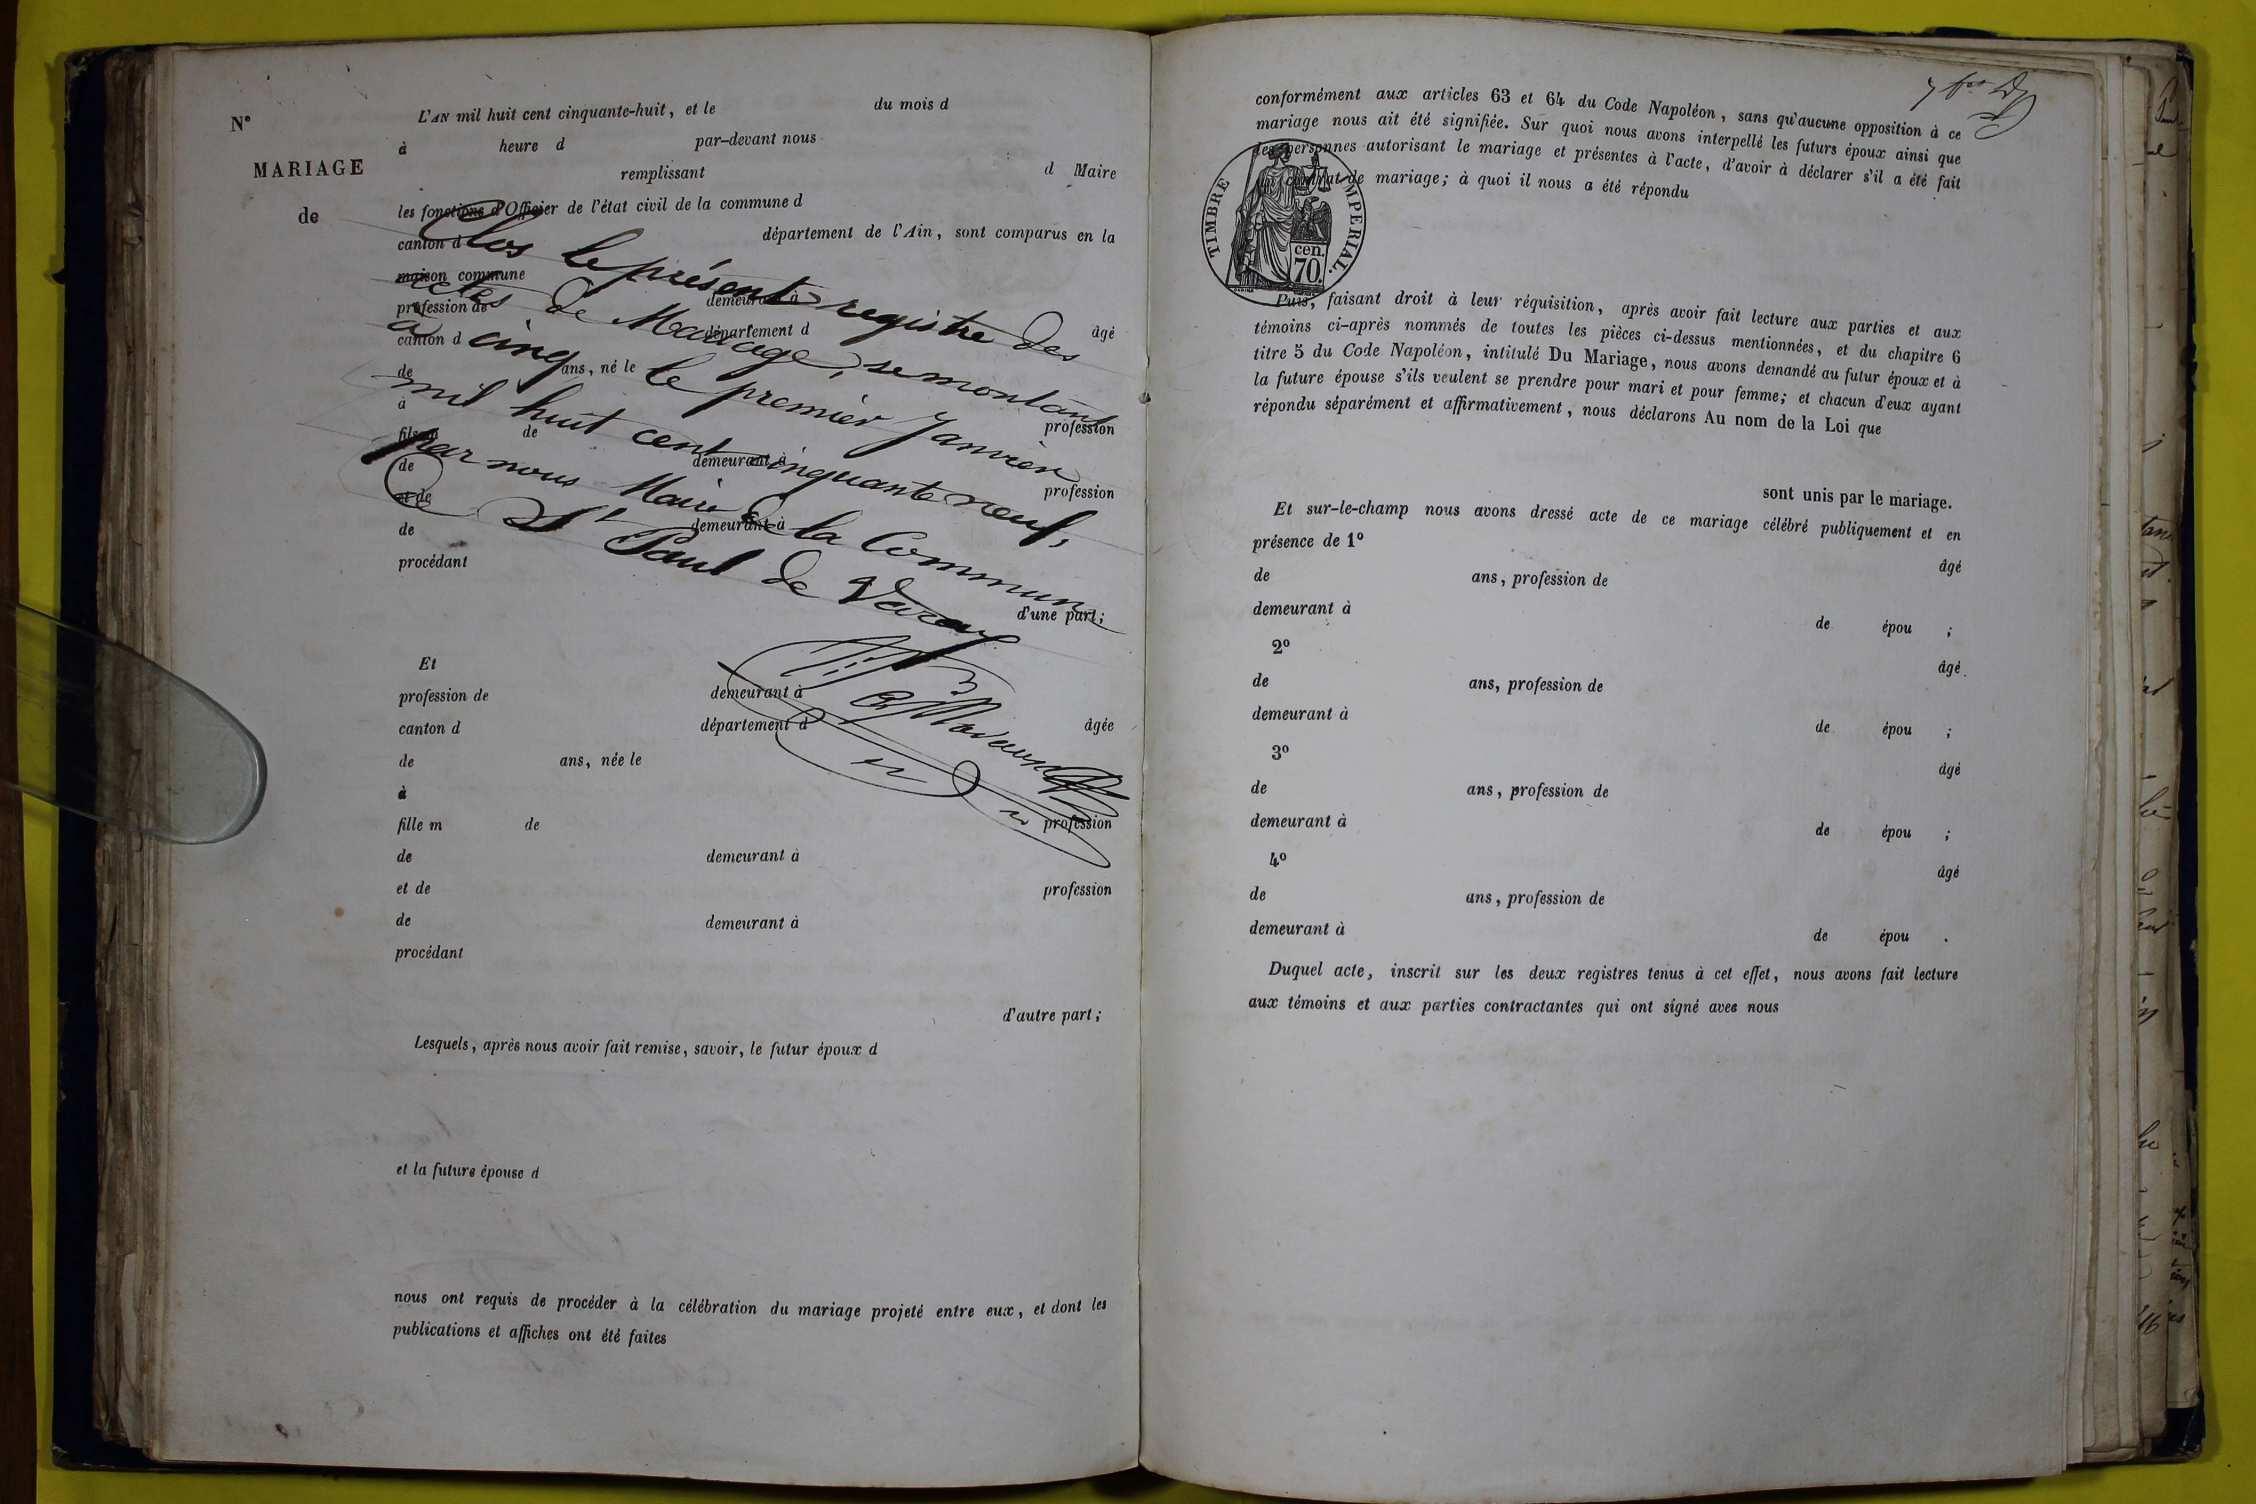 N°
MARIAGE
de
L'AN mil huit cent cinquante-huit, et le du mois d
à heure d par-devant nous
remplissant d Maire
les fonctions d'Officier de l'état civil de la commune d
canton d département de l'Ain, sont comparus en la
maison commune
profession de demeurant à
canton d département d âgé
de ans, né le
à
fils m de profession
de demeurant à
et de profession
de demeurant à
procédant
d'une part;
Clos le présent registre des
actes de Mariage, se montant
à cinq le premier Janvier
mil huit cent cinquante neuf,
par nous Maire de la Commune
de St Paul de Varax
Et
profession de demeurant à
canton d département d âgée
de ans, née le
à
fille m de profession
de demeurant à
et de profession
de demeurant à
procédant
d'autre part;
Lesquels, après nous avoir fait remise, savoir, le futur époux d
et la future épouse d
nous ont requis de procéder à la célébration du mariage projeté entre eux, et dont les
publications et affiches ont été faites
conformément aux articles 63 et 64 du Code Napoléon, sans qu'aucune opposition à ce
mariage nous ait été signifiée. Sur quoi nous avons interpellé les futurs époux ainsi que
les personnes autorisant le mariage et présentes à l'acte, d'avoir à déclarer s'il a été fait
contrat de mariage; à quoi il nous a été répondu
TIMBRE IMPERIAL.
70 cen.
Puis, faisant droit à leur réquisition, après avoir fait lecture aux parties et aux
témoins ci-après nommés de toutes les pièces ci-dessus mentionnées, et du chapitre 6
titre 5 du Code Napoléon, intitulé Du Mariage, nous avons demandé au futur époux et à
la future épouse s'ils veulent se prendre pour mari et pour femme; et chacun d'eux ayant
répondu séparément et affirmativement, nous déclarons Au nom de la Loi que
sont unis par le mariage.
Et sur-le-champ nous avons dressé acte de ce mariage célébré publiquement et en
présence de 1° âgé
de ans, profession de
demeurant à de épou ;
2° âgé
de ans, profession de
demeurant à de épou ;
3° âgé
de ans, profession de
demeurant à de épou ;
4° âgé
de ans, profession de
demeurant à de épou .
Duquel acte, inscrit sur les deux registres tenus à cet effet, nous avons fait lecture
aux témoins et aux parties contractantes qui ont signé avec nous